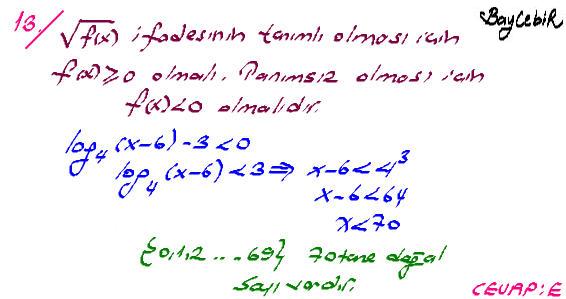 13/ √f(x) ifadesinin tanımlı olması için
BayCebir
f(x)≥0 olmalı. Tanımsız olması için
f(x)<0 olmalıdır.
log₄(x-6)-3<0
log₄(x-6)<3 ⇒ x-6<4³
x-6<64
x<70
{0,1,2 ... 69} 70 tane doğal
sayı vardır.
CEVAP:E